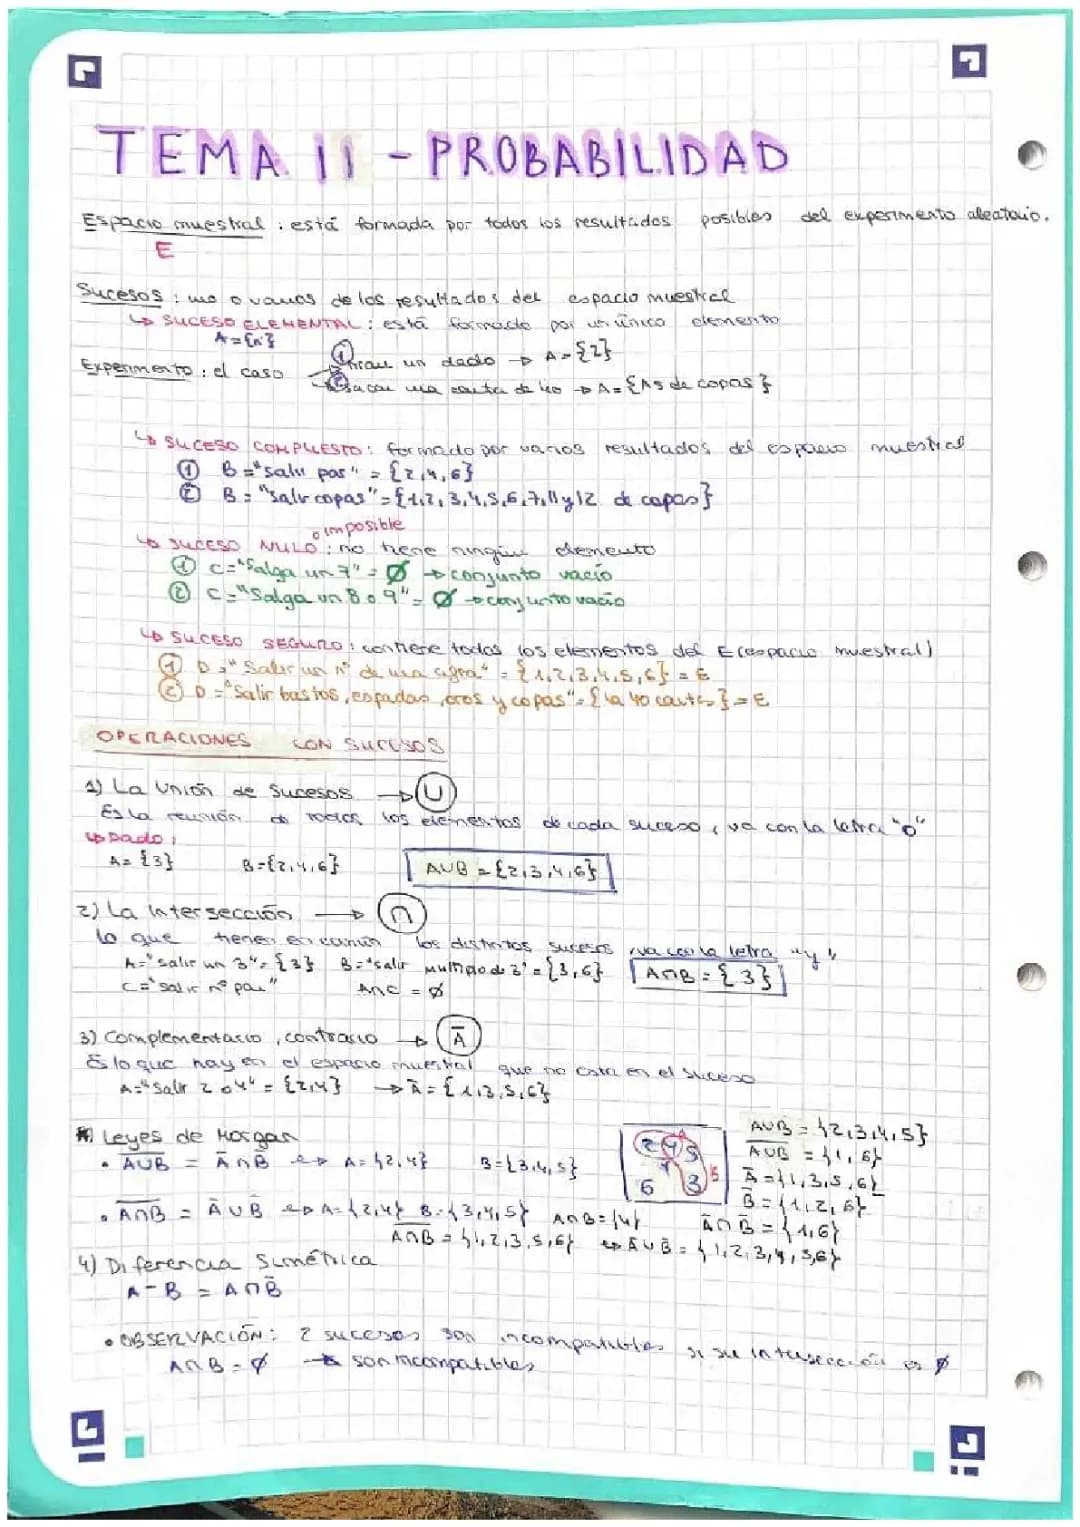 TEMA 11 - PROBABILIDAD
Espacio muestral : está formada por todos los resultados posibles del experimento aleatorio.
E
Sucesos : uno o varios de los resultados del espacio muestral
↳ SUCESO ELEMENTAL : está formado por un único elemento
A = {n}
Experimento : el caso
① Tirar un dado → A = {2}
② Sacar una carta de 40 → A = {As de copas}
↳ SUCESO COMPUESTO : formado por varios resultados del espacio muestral
① B = "salir par" = {2,4,6}
② B = "salir copas" = {1,2,3,4,5,6,7,11 y 12 de copas}
o imposible
↳ SUCESO NULO : no tiene ningún elemento
① C = "Salga un 7" = Ø → conjunto vacío
② C = "Salga un 8 o 9" = Ø → conjunto vacío
↳ SUCESO SEGURO : contiene todos los elementos del E (espacio muestral)
① D = "Salir un nº de una cifra" = {1,2,3,4,5,6} = E
② D = "Salir bastos, espadas, oros y copas" = {la 40 cartas} = E
OPERACIONES CON SUCESOS
1) La Unión de Sucesos → U
Es la reunión de todos los elementos de cada suceso, va con la letra "o"
↳ Dado :
A = {3} B = {2,4,6} A∪B = {2,3,4,6}
2) La Intersección → ∩
lo que tienen en común los distintos sucesos, va con la letra "y"
A = "salir un 3" = {3} B = "salir multiplo de 3" = {3,6} A∩B = {3}
C = "salir nº par" A∩C = Ø
3) Complementario, contrario → Ā
Es lo que hay en el espacio muestral que no esta en el suceso
A = "Salir 2 o 4" = {2,4} → Ā = {1,3,5,6}
Leyes de Morgan
• A̅∪̅B̅ = Ā∩B̄ → A = {2,4} B = {3,4,5}
• A̅∩̅B̅ = Ā∪B̄ → A = {2,4} B = {3,4,5} A∩B = {4}
A̅∩̅B̅ = {1,2,3,5,6} ↔ Ā∪B̄ = {1,2,3,4,5,6}
2 4 5
6 3
A∪B = {2,3,4,5}
A̅∪̅B̅ = {1,6}
Ā = {1,3,5,6}
B̄ = {1,2,6}
Ā∩B̄ = {1,6}
4) Diferencia Simétrica
A - B = A∩B̄
• OBSERVACIÓN : 2 sucesos son incompatibles si su intersección es Ø
A∩B = Ø → son incompatibles